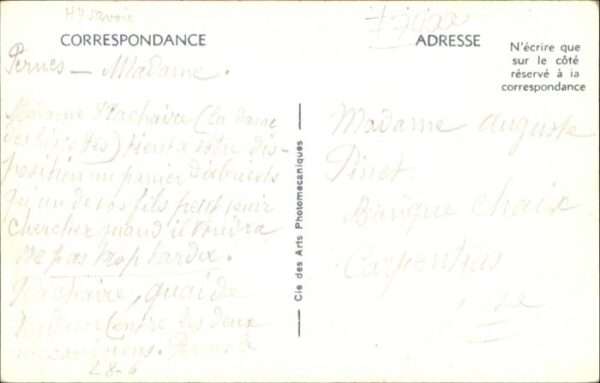 Hte Savoie
CORRESPONDANCE
ADRESSE
N'écrire que
sur le côté
réservé à la
correspondance
Pernes — Madame.
Madame Machaire (la dame
des) tient à votre dis-
position un panier d'abricots
qu'un de vos fils peut venir
chercher quand il voudra
ne pas trop tarder.
Machaire, quai de
entre les deux
28-6
Cie des Arts Photomecaniques
Madame Auguste
Pinet
Banque Chaix
Carpentras